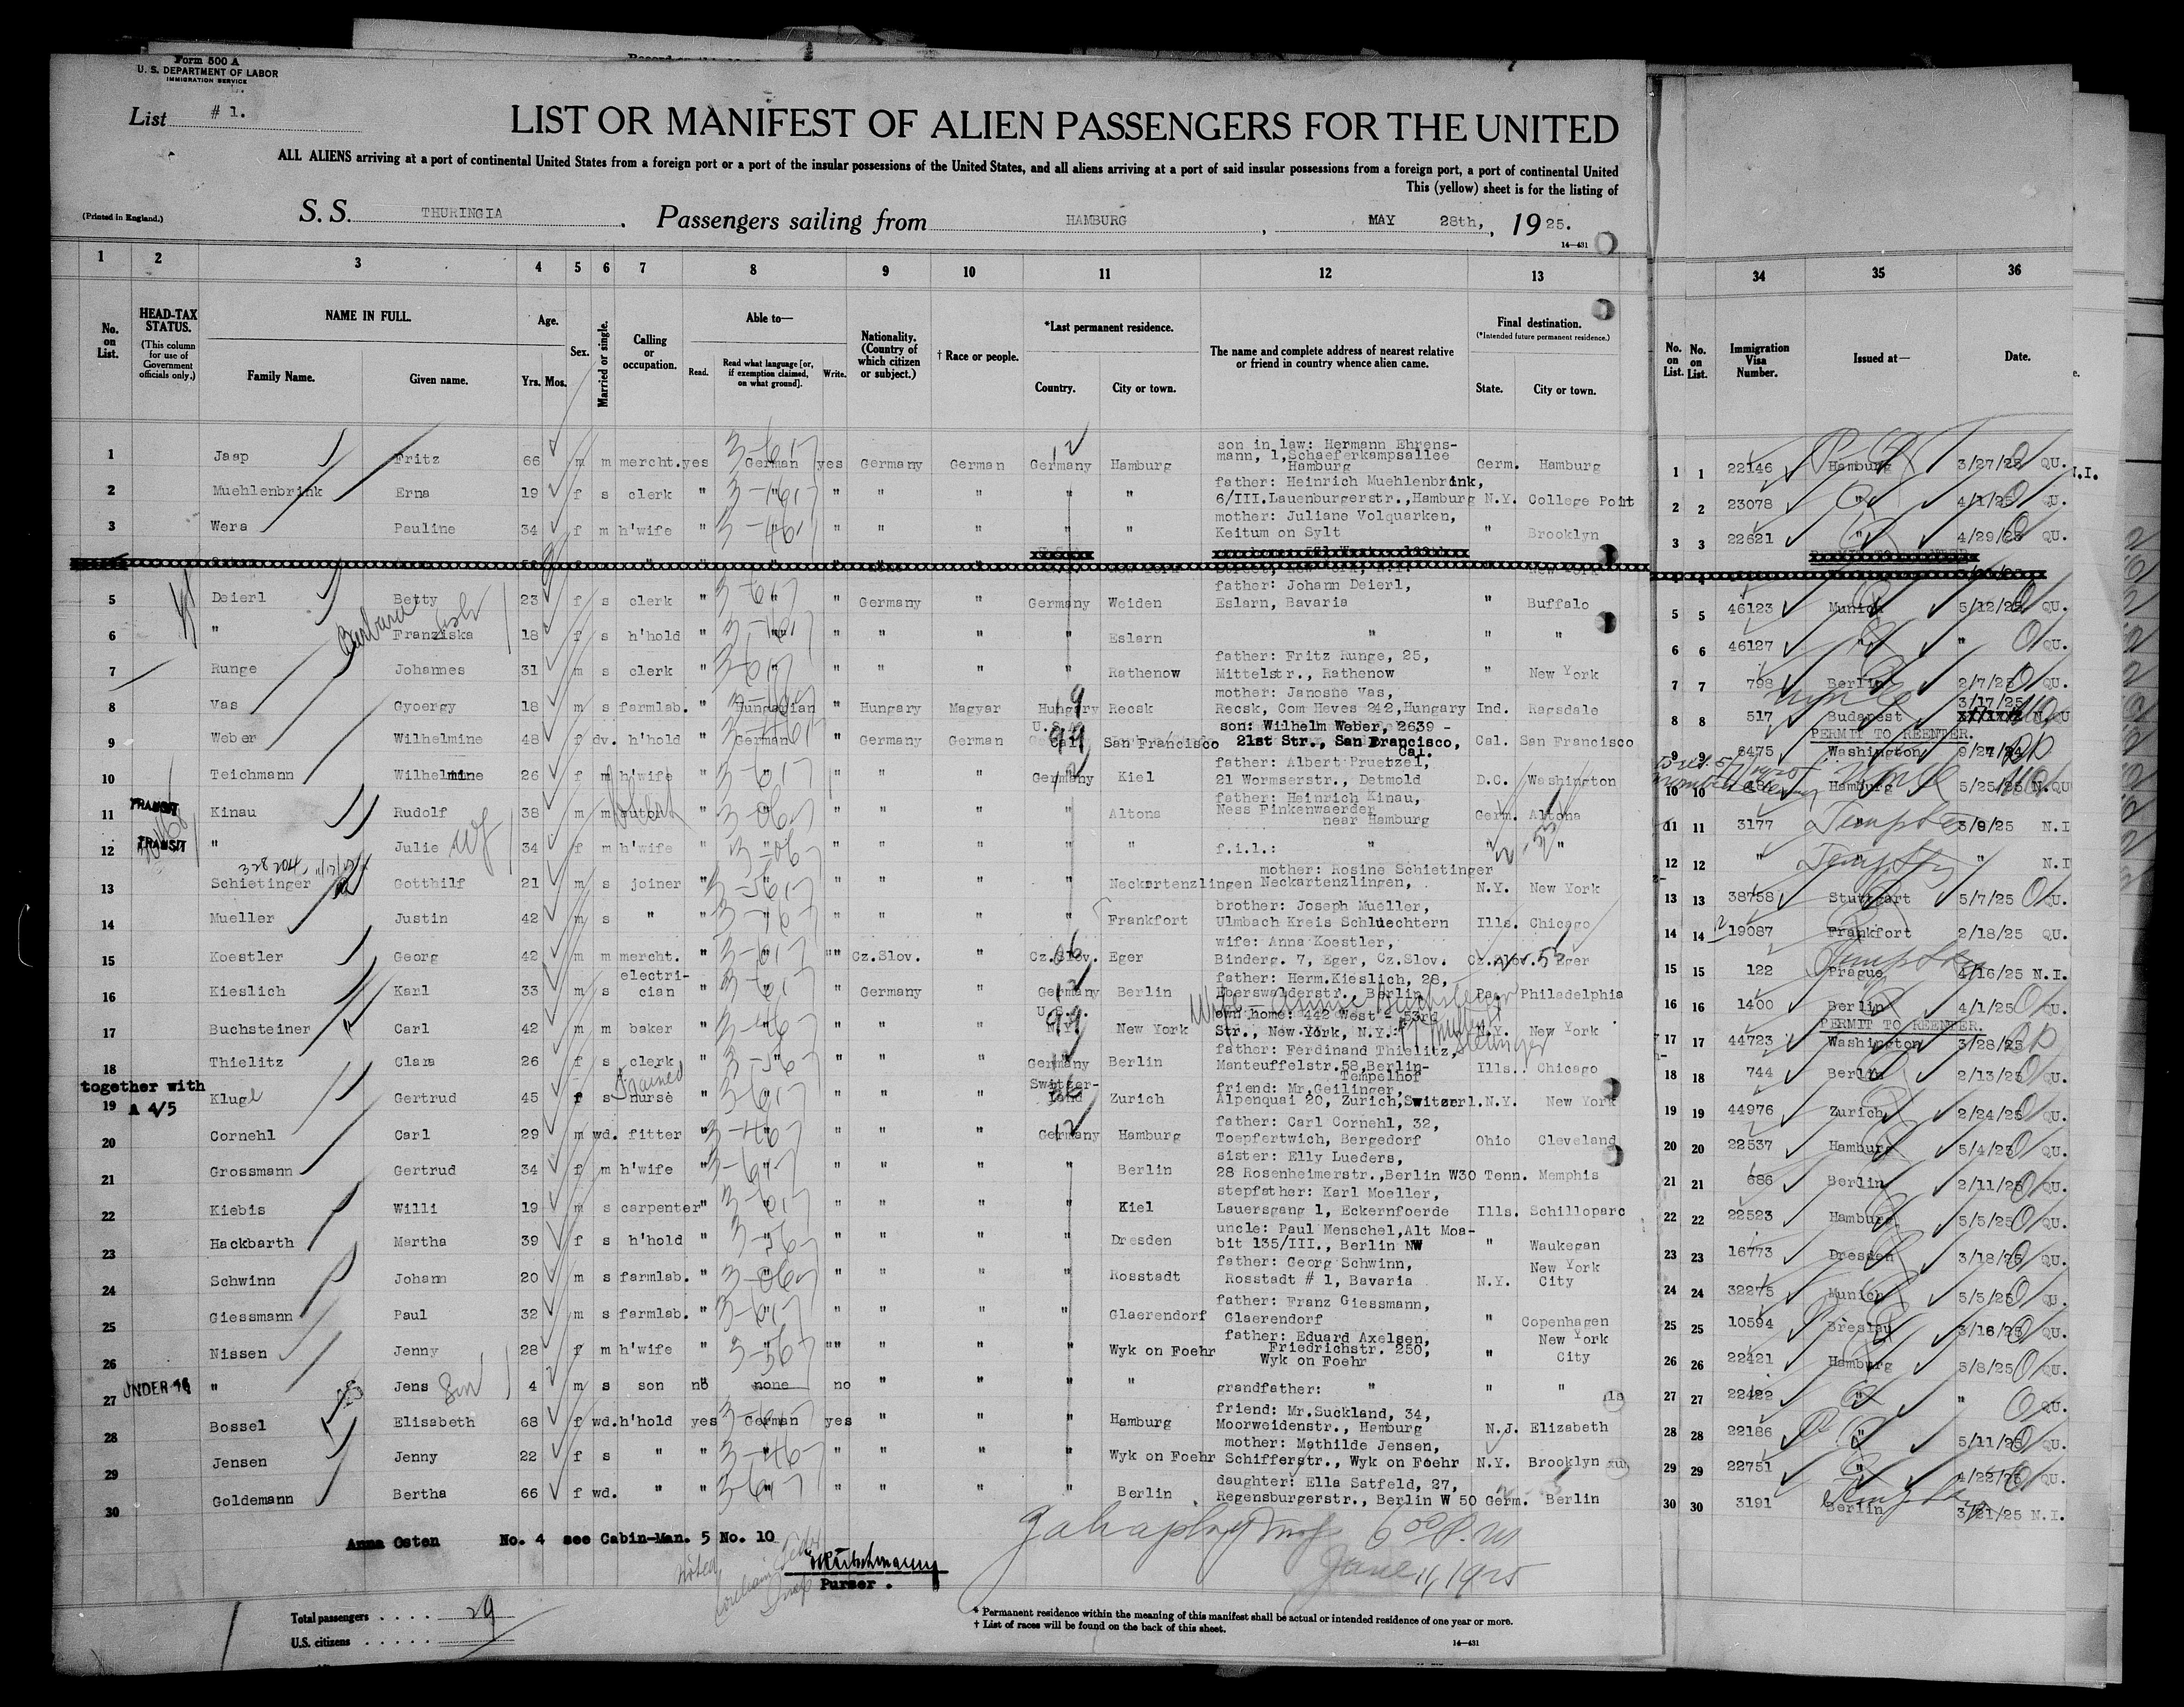 Form 500 A
U. S. DEPARTMENT OF LABOR
IMMIGRATION SERVICE
List # 1.
LIST OR MANIFEST OF ALIEN PASSENGERS FOR THE UNITED
ALL ALIENS arriving at a port of continental United States from a foreign port or a port of the insular possessions of the United States, and all aliens arriving at a port of said insular possessions from a foreign port, a port of continental United
This (yellow) sheet is for the listing of
(Printed in England.)
S. S. THURINGIA. Passengers sailing from HAMBURG, MAY 28th, 1925.
14—431
1 2 3 4 5 6 7 8 9 10 11 12 13 34 35 36
No. on List. HEAD-TAX STATUS. (This column for use of Government officials only.) NAME IN FULL. Family Name. Given name. Age. Yrs. Mos. Sex. Married or single. Calling or occupation. Able to— Read. Read what language [or, if exemption claimed, on what ground]. Write. Nationality. (Country of which citizen or subject.) † Race or people. *Last permanent residence. Country. City or town. The name and complete address of nearest relative or friend in country whence alien came. Final destination. (*Intended future permanent residence.) State. City or town. No. on List. No. on List. Immigration Visa Number. Issued at— Date.
1 Jaap Fritz 66 m m mercht. yes German yes Germany German Germany Hamburg son in law: Hermann Ehrens-mann, 1,Schaeferkampsallee Hamburg Germ. Hamburg 1 1 22146 Hamburg 3/27/25 QU.
2 Muehlenbrink Erna 19 f s clerk " " " " " " " father: Heinrich Muehlenbrink, 6/III.Lauenburgerstr.,Hamburg N.Y. College Point 2 2 23078 " 4/1/25 QU.
3 Wera Pauline 34 f m h'wife " " " " " " " mother: Juliane Volquarken, Keitum on Sylt " Brooklyn 3 3 22621 " 4/29/25 QU.
5 Deierl Betty 23 f s clerk " " " Germany " Germany Weiden father: Johann Deierl, Eslarn, Bavaria " Buffalo 5 5 46123 Munich 5/12/25 QU.
6 " Barbara Franziska 18 f s h'hold " " " " " " Eslarn " " " 6 6 46127 " " QU.
7 Runge Johannes 31 m s clerk " " " " " " Rathenow father: Fritz Runge, 25, Mittelstr., Rathenow " New York 7 7 798 Berlin 2/7/25 QU.
8 Vas Gyoergy 18 m s farmlab. " Hungarian " Hungary Magyar Hungary Recsk mother: Janosne Vas, Recsk, Com Heves 242,Hungary Ind. Ragsdale 8 8 517 Budapest 3/17/25
9 Weber Wilhelmine 48 f dv. h'hold " German " Germany German U.S. Cal. San Francisco son: Wilhelm Weber, 2639 - 21st Str., San Francisco, Cal. Cal. San Francisco 9 9 6475 PERMIT TO REENTER. Washington 9/27/24
10 Teichmann Wilhelmine 26 f m h'wife " " " " " Germany Kiel father: Albert Pruetzel, 21 Wormserstr., Detmold D.C. Washington 10 10 Hamburg 5/25/25 N.QU
11 TRANSIT Kinau Rudolf 38 m m autor " " " " " " Altona father: Heinrich Kinau, Ness Finkenwaerder near Hamburg Germ. Altona 11 11 3177 " 3/9/25 N.I
12 TRANSIT " Julie wf 34 f m h'wife " " " " " " " f.i.l.: " " " 12 12 " " " N.I
13 Schietinger Gotthilf 21 m s joiner " " " " " " Neckartenzlingen mother: Rosine Schietinger Neckartenzlingen, N.Y. New York 13 13 38758 Stuttgart 5/7/25 QU.
14 Mueller Justin 42 m s " " " " " " " Frankfort brother: Joseph Mueller, Ulmbach Kreis Schluechtern Ills. Chicago 14 14 19087 Frankfort 2/18/25 QU.
15 Koestler Georg 42 m m mercht. " " "" Cz.Slov. " Cz.Slov. Eger wife: Anna Koestler, Binderg. 7, Eger, Cz.Slov. Cz.Slov. Eger 15 15 122 Prague 4/16/25 N.I.
16 Kieslich Karl 33 m s electri-cian " " " Germany " Germany Berlin father: Herm.Kieslich, 28, Eberswalderstr., Berlin Pa. Philadelphia 16 16 1400 Berlin 4/1/25 QU.
17 Buchsteiner Carl 42 m m baker " " " " " U.S. N.Y. New York own home: 442 West - 53rd Str., New York, N.Y. N.Y. New York 17 17 44723 PERMIT TO REENTER. Washington 3/28/25
18 Thielitz Clara 26 f s clerk " " " " " Germany Berlin father: Ferdinand Thielitz, Manteuffelstr.58,Berlin-Tempelhof Ills. Chicago 18 18 744 Berlin 2/13/25 QU.
together with A 4/5
19 Klugl Gertrud 45 f s Trained nurse " " " " " Switzer-land Zurich friend: Mr.Geilinger, Alpenquai 20, Zurich,Switzerl. N.Y. New York 19 19 44976 Zurich 2/24/25 QU.
20 Cornehl Carl 29 m wd. fitter " " " " " Germany Hamburg father: Carl Cornehl, 32, Toepfertwich, Bergedorf Ohio Cleveland 20 20 22537 Hamburg 5/4/25 QU.
21 Grossmann Gertrud 34 f m h'wife " " " " " " Berlin sister: Elly Lueders, 28 Rosenheimerstr.,Berlin W30 Tenn. Memphis 21 21 686 Berlin 2/11/25 QU.
22 Kiebis Willi 19 m s carpenter " " " " " " Kiel stepfather: Karl Moeller, Lauersgang 1, Eckernfoerde Ills. Schilloparc 22 22 22523 Hamburg 5/5/25 QU.
23 Hackbarth Martha 39 f s h'hold " " " " " " Dresden uncle: Paul Menschel,Alt Moa-bit 135/III., Berlin NW " Waukegan 23 23 16773 Dresden 3/18/25 QU.
24 Schwinn Johann 20 m s farmlab. " " " " " " Rosstadt father: Georg Schwinn, Rosstadt # 1, Bavaria N.Y. New York City 24 24 32275 Munich 5/5/25 QU.
25 Giessmann Paul 32 m s farmlab. " " " " " " Glaerendorf father: Franz Giessmann, Glaerendorf " Copenhagen 25 25 10594 Breslau 3/16/25 QU.
26 Nissen Jenny 28 f m h'wife " " "" " " " Wyk on Foehr father: Eduard Axelsen, Friedrichstr. 250, Wyk on Foehr " New York City 26 26 22421 Hamburg 5/8/25 QU.
27 UNDER 16 " Jens Son 4 m s son no none no " " " " grandfather: " " " 27 27 22422 " " QU.
28 Bossel Elisabeth 68 f wd. h'hold yes German yes " " " Hamburg friend: Mr.Suckland, 34, Moorweidenstr., Hamburg N.J. Elizabeth 28 28 22186 " 5/11/25 QU.
29 Jensen Jenny 22 f s " " " " " " " Wyk on Foehr mother: Mathilde Jensen, Schifferstr., Wyk on Foehr N.Y. Brooklyn 29 29 22751 " 4/22/25 QU.
30 Goldemann Bertha 66 f wd. " " " " " " " Berlin daughter: Ella Satfeld, 27, Regensburgerstr., Berlin W 50 Germ. Berlin 30 30 3191 Berlin 3/21/25 N.I.
Anna Osten No. 4 see Cabin-Man. 5 No. 10
Purser.
June 11, 1925
Total passengers . . . . 29
U.S. citizens . . . . .
* Permanent residence within the meaning of this manifest shall be actual or intended residence of one year or more.
† List of races will be found on the back of this sheet.
14—431